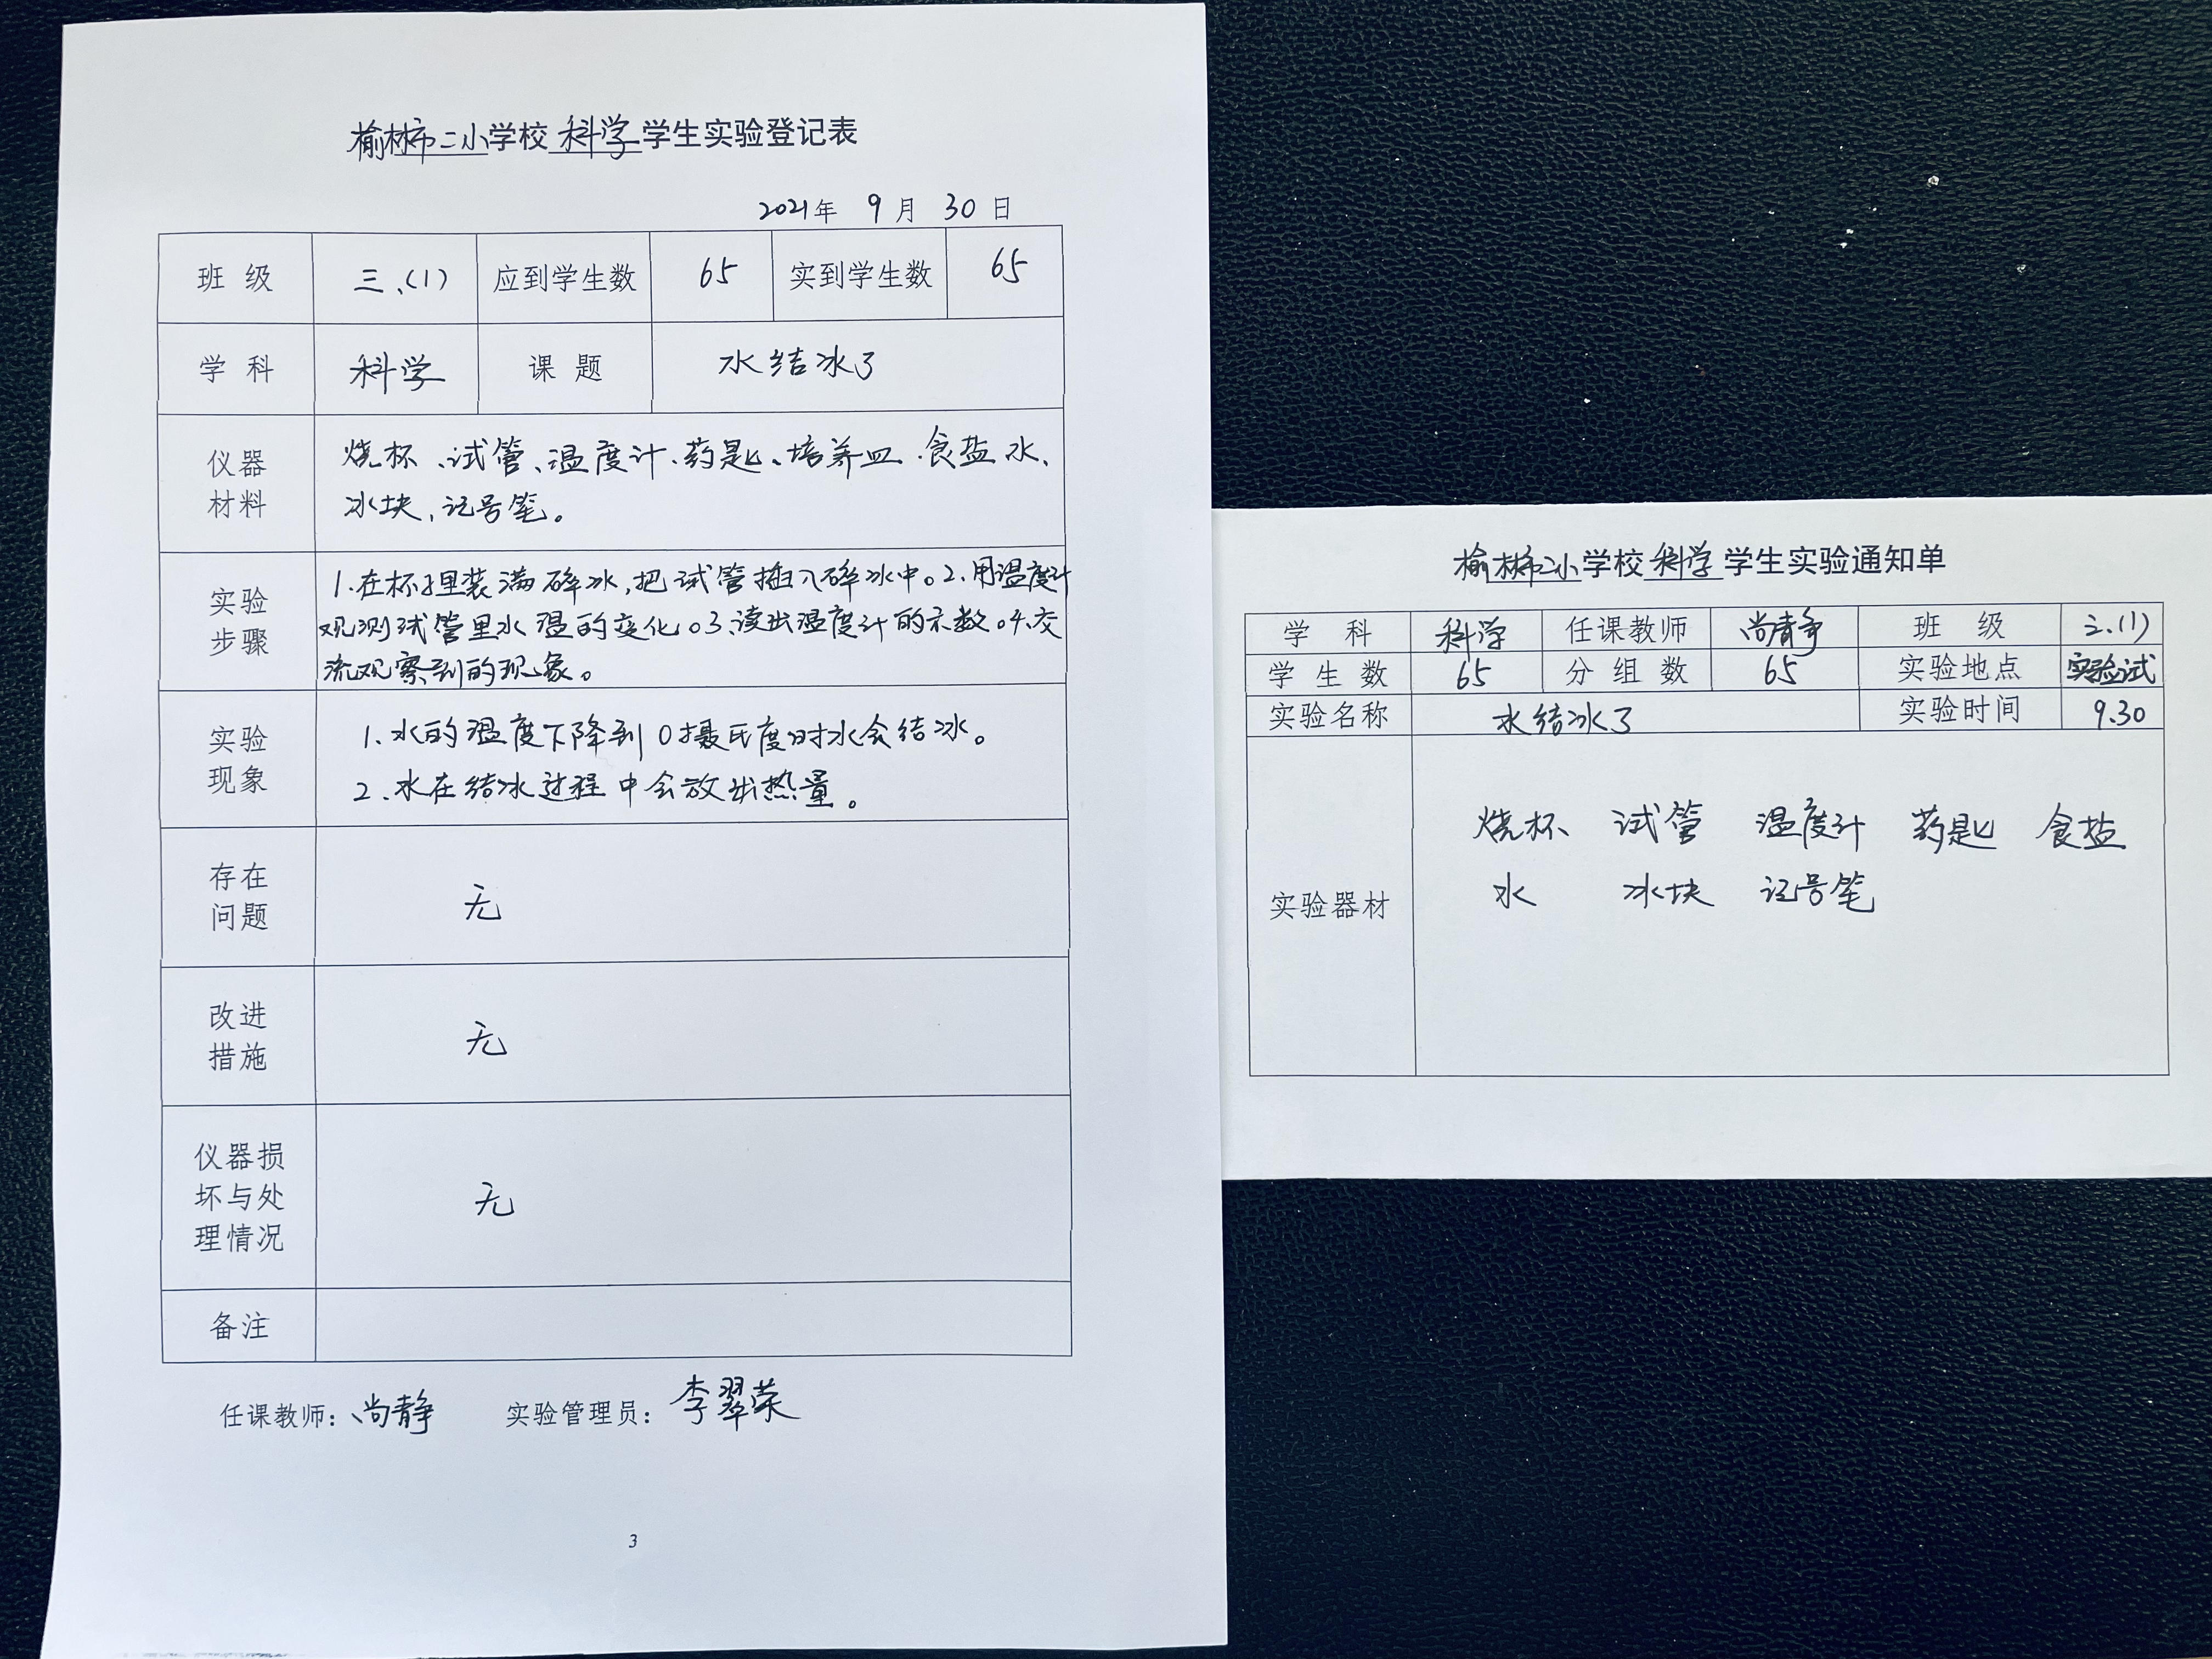 榆林市二小学校 科学 学生实验登记表
2021年 9月 30日
班级 三、(1) 应到学生数 65 实到学生数 65
学科 科学 课题 水结冰了
仪器材料
烧杯、试管、温度计、药匙、培养皿、食盐水、
冰块、记号笔。
实验步骤
1.在杯子里装满碎冰,把试管插入碎冰中。2.用温度计
观测试管里水温的变化。3、读出温度计的示数。4、交
流观察到的现象。
实验现象
1、水的温度下降到0摄氏度时水会结冰。
2、水在结冰过程中会放出热量。
存在问题
无
改进措施
无
仪器损坏与处理情况
无
备注
任课教师:尚静 实验管理员:李翠荣
3
榆林市二小学校 科学 学生实验通知单
学科 科学 任课教师 尚静 班级 三、(1)
学生数 65 分组数 65 实验地点 实验试
实验名称 水结冰了 实验时间 9.30
实验器材
烧杯、 试管 温度计 药匙 食盐
水 冰块 记号笔